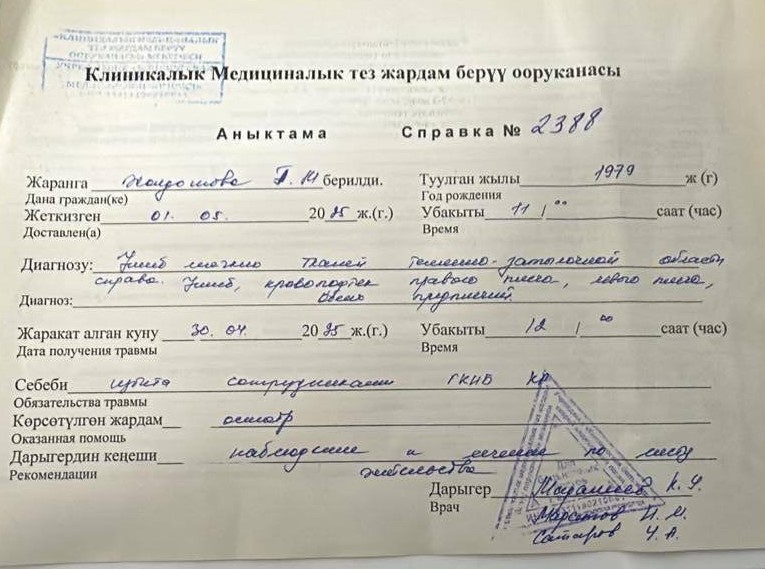 «КЛИНИКАЛЫК МЕДИЦИНАЛЫК
ТЕЗ ЖАРДАМ БЕРҮҮ
ООРУКАНАСЫ» МЕКЕМЕСИ
Клиникалык Медициналык тез жардам берүү ооруканасы
Аныктама Справка № 2388
Жаранга Жолдошова Г. М берилди. Туулган жылы 1979 ж (г)
Дана граждан(ке) Год рождения
Жеткизген 01. 05. 20 25 ж.(г.) Убакыты 11 / 00 саат (час)
Доставлен(а) Время
Диагнозу: Ушиб мягких тканей теменно-затылочной области
справа. Ушиб, кровоподтек правого плеча, левого плеча,
Диагноз: обеих предплечий.
Жаракат алган куну 30. 04. 20 25 ж.(г.) Убакыты 12 / 00 саат (час)
Дата получения травмы Время
Себеби избита сотрудниками ГКНБ КР
Обязательства травмы
Көрсөтүлгөн жардам осмотр
Оказанная помощь
Дарыгердин кеңеши наблюдение и лечение по месту
Рекомендации жительства
Дарыгер К. У.
Врач
Сатаров Ч. А.